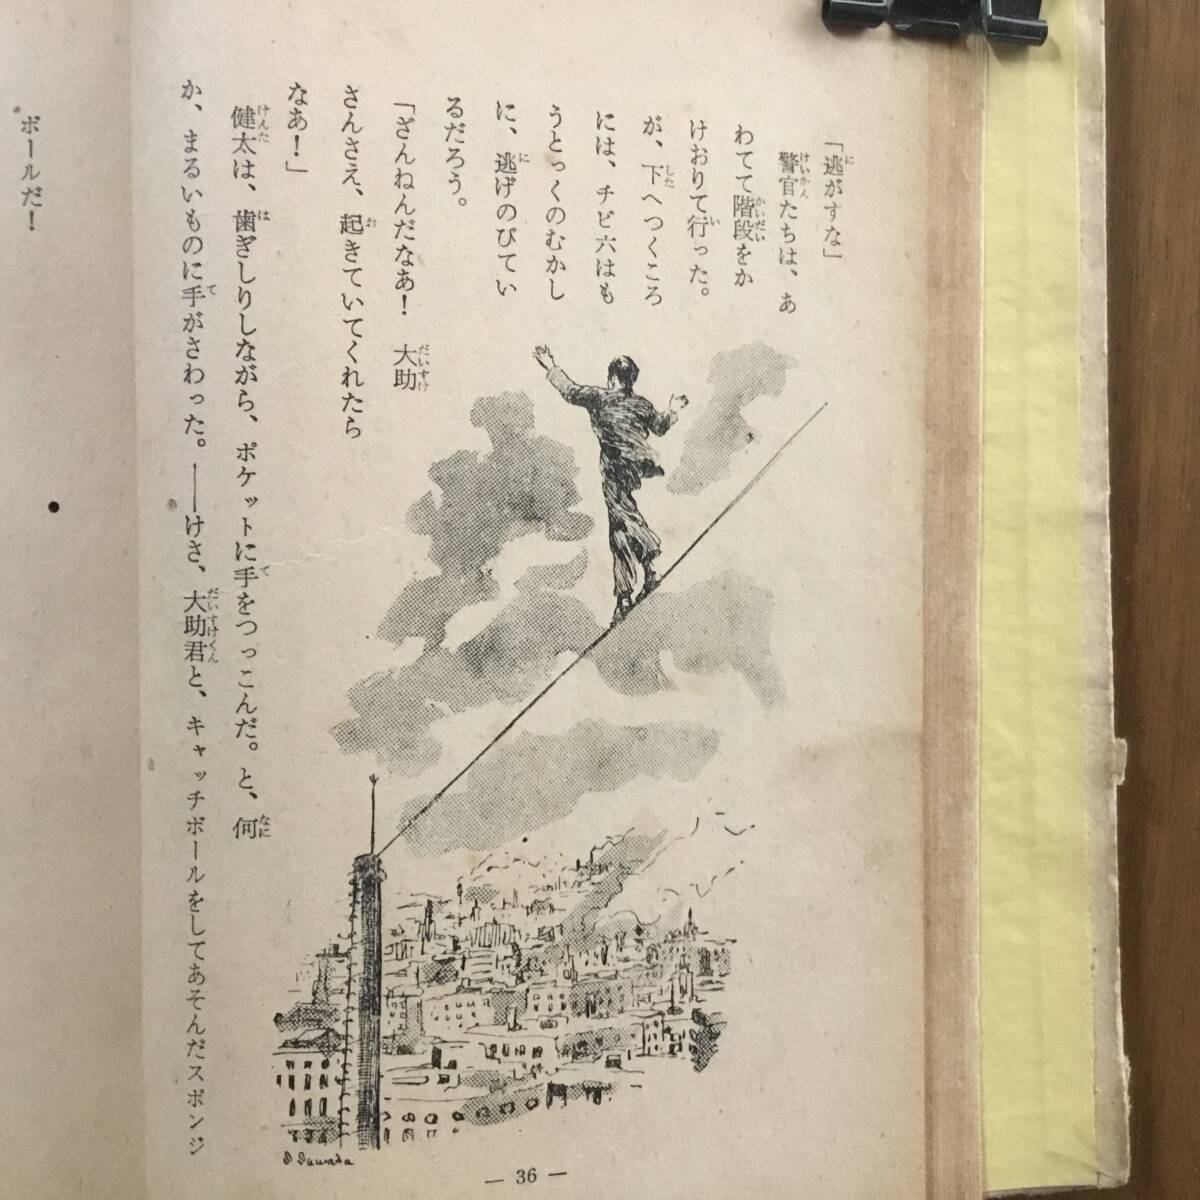 「逃がすな」
警官たちは、あ
わてて階段をか
けおりて行った。
が、下へつくころ
には、チビ六はも
うとっくのむかし
に、逃げのびてい
るだろう。
「ざんねんだなあ！　大助
さんさえ、起きていてくれたら
なあ！」
健太は、歯ぎしりしながら、ポケットに手をつっこんだ。と、何
か、まるいものに手がさわった。――けさ、大助君と、キャッチボールをしてあそんだスポンジ
ボールだ！
S Sawada
— 36 —